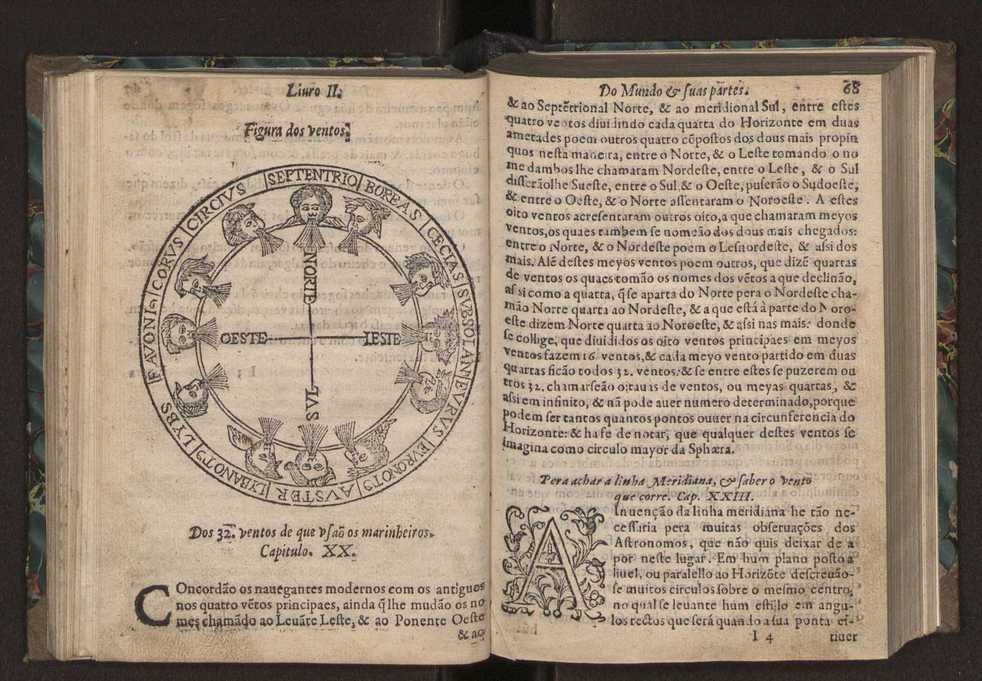 Liuro II.
Figura dos ventos.
SEPTENTRIO
BOREAS
CECIAS
SVBSOLAN9
EVRVS
EVRONOT9
AVSTER
LYBANOT9
LYBS
FAVONI9
CORVS
CIRCIVS
NORTE
OESTE
LESTE
SVL
Dos 32. ventos de que vsaõ os marinheiros.
Capitulo. XX.
COncordão os nauegantes modernos com os antigues
nos quatro vẽtos principaes, ainda q̃ lhe mudão os no
mes chamãdo ao Leuãte Leste, & ao Ponente Oeste
& ao
Do Mundo & suas partes. 68
& ao Septẽtrional Norte, & ao meridional Sul, entre estes
quatro ventos diuidindo cada quarta do Horizonte em duas
ametades poem outros quatro cõpostos dos dous mais propin
quos nesta maneira, entre o Norte, & o Leste tomando o no
me dambos lhe chamaram Nordeste, entre o Leste, & o Sul
disserãolhe Sueste, entre o Sul & o Oeste, puserão o Sudoeste,
& entre o Oeste, & o Norte assentaram o Noroeste. A estes
oito ventos acresentaram outros oito, a que chamaram meyos
ventos, os quaes tambem se nomeão dos dous mais chegados:
entre o Norte, & o Nordeste poem o Lesnordeste, & assi dos
mais. Alẽ destes meyos ventos poem outros, que dizẽ quartas
de ventos os quaes tomão os nomes dos vẽtos a que declinão,
assi como a quarta, q̃ se aparta do Norte pera o Nordeste cha-
mão Norte quarta ao Nordeste, & a que està à parte do Noro-
este dizem Norte quarta ao Noroeste, & assi nas mais: donde
se collige, que diuididos os oito ventos principaes em meyos
ventos fazem 16 ventos, & cada meyo vento partido em duas
quartas ficão todos 32. ventos: & se entre estes se puzerem ou
tros 32. chamarseão oitauas de ventos, ou meyas quartas, &
assi em infinito, & nã pode auer numero determinado, porque
podem ser tantos quantos pontos ouuer na circunferencia do
Horizonte: & hase de notar, que qualquer destes ventos se
imagina como circulo mayor da Sphæra.
Pera achar a linha Meridiana, & saber o vento
que corre. Cap. XXIII.
AInuenção da linha meridiana he tão ne-
cessaria pera muitas obseruações dos
Astronomos, que não quis deixar de a
por neste lugar. Em hum plano posto a
liuel, ou paralello ao Horizõte descreuão-
se muitos circulos sobre o mesmo centro,
no qual se leuante hum estilo em angu-
los rectos que será quando a sua ponta es-
I 4 tiuer